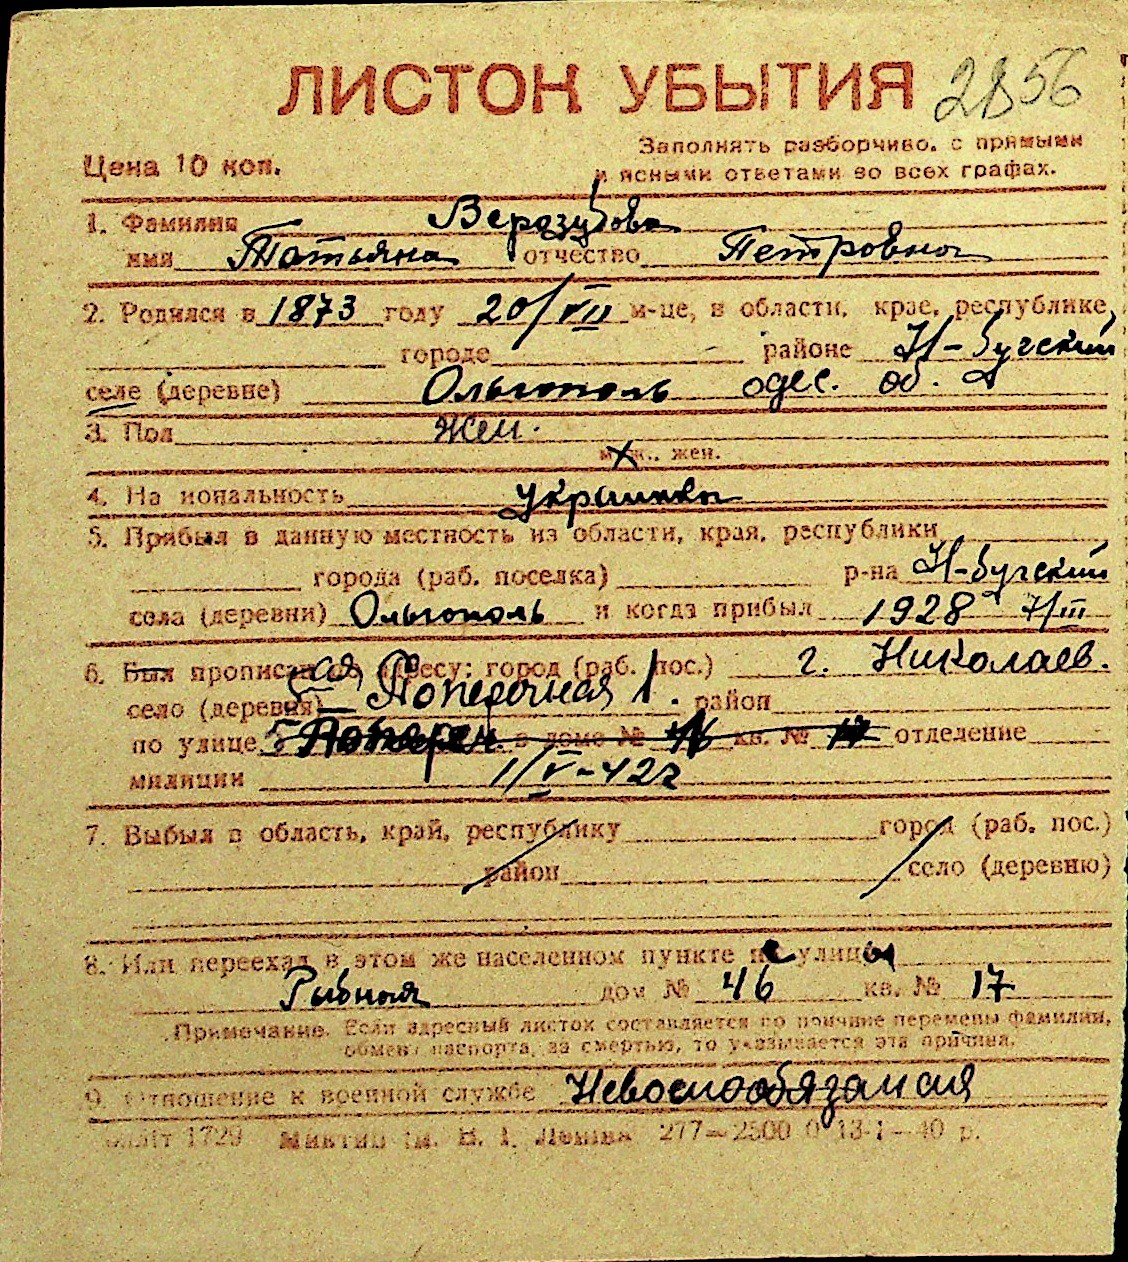 ЛИСТОК УБЫТИЯ 2856
Заполнять разборчиво, с прямыми
и ясными ответами во всех графах.
Цена 10 коп.
1. Фамилия Верозубова
имя Татьяна отчество Петровна
2. Родился в 1873 году 20/VII м-це, в области, крае, республике,
городе районе Н-бугский
селе (деревне) Ольгополь одес. об.
3. Пол жен.
муж., жен.
4. На иональность украинка
5. Прибыл в данную местность из области, края, республики
города (раб. поселка) р-на Н-бугский
села (деревни) Ольгополь и когда прибыл 1928 7/III
6. Был прописан по адресу: город (раб. пос.) г. Николаев.
село (деревня) 5ая Поперечная 1. район
по улице 5 Попереч. в доме № 46 кв. № 17 отделение
милиции 1/V-42г
7. Выбыл в область, край, республику город (раб. пос.)
район село (деревню)
8. Или переехал в этом же населенном пункте с улицы
Рыбная дом № 46 кв. № 17
Примечание. Если адресный листок составляется по причине перемены фамилии,
обмена паспорта, за смертью, то указывается эта причина.
9. Отношение к военной службе Невоенообязаная
1729 ім. В. І. Леніна 277—2500 0 13-I—40 р.